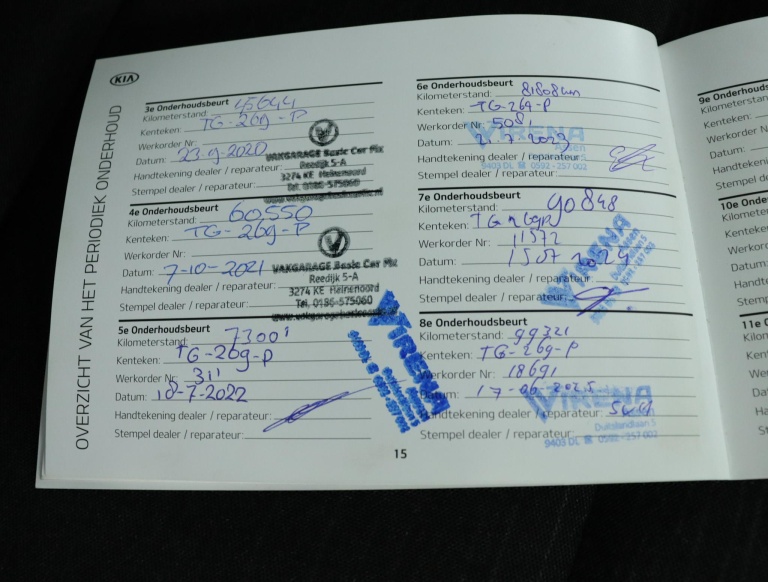 KIA
OVERZICHT VAN HET PERIODIEK ONDERHOUD
3e Onderhoudsbeurt
Kilometerstand: 45644
Kenteken: TG-269-P
Werkorder Nr:
Datum: 23-9-2020
Handtekening dealer / reparateur:
Stempel dealer / reparateur:
VAKGARAGE Basic Car Mix
Reedijk 5-A
3274 KE Heinenoord
Tel. 0186-575060
4e Onderhoudsbeurt
Kilometerstand: 60550
Kenteken: TG-269-P
Werkorder Nr:
Datum: 7-10-2021
Handtekening dealer / reparateur:
Stempel dealer / reparateur:
VAKGARAGE Basic Car Mix
Reedijk 5-A
3274 KE Heinenoord
Tel. 0186-575060
5e Onderhoudsbeurt
Kilometerstand: 73001
Kenteken: TG-269-P
Werkorder Nr: 311
Datum: 18-7-2022
Handtekening dealer / reparateur:
Stempel dealer / reparateur:
WIRENA
6e Onderhoudsbeurt
Kilometerstand: 81808km
Kenteken: TG-269-P
Werkorder Nr: 5081
Datum: 21-7-2023
Handtekening dealer / reparateur:
Stempel dealer / reparateur:
WIRENA
9403 DL ☎ 0592-257 002
7e Onderhoudsbeurt
Kilometerstand: 90848
Kenteken: TG269P
Werkorder Nr: 11572
Datum: 15 07 2024
Handtekening dealer / reparateur:
Stempel dealer / reparateur:
WIRENA
8e Onderhoudsbeurt
Kilometerstand: 99321
Kenteken: TG-269-P
Werkorder Nr: 18691
Datum: 17-06-2025
Handtekening dealer / reparateur:
Stempel dealer / reparateur:
WIRENA
Duitslandlaan 5
9403 DL ☎ 0592-257 002
15
9e Onderhoudsbeurt
Kilometerstand
Kenteken:
Werkorder N
Datum:
Handteken
Stempel de
10e Onde
Kilomete
Kenteke
Werkor
Datum
Handt
Stemp
11e O
Kilon